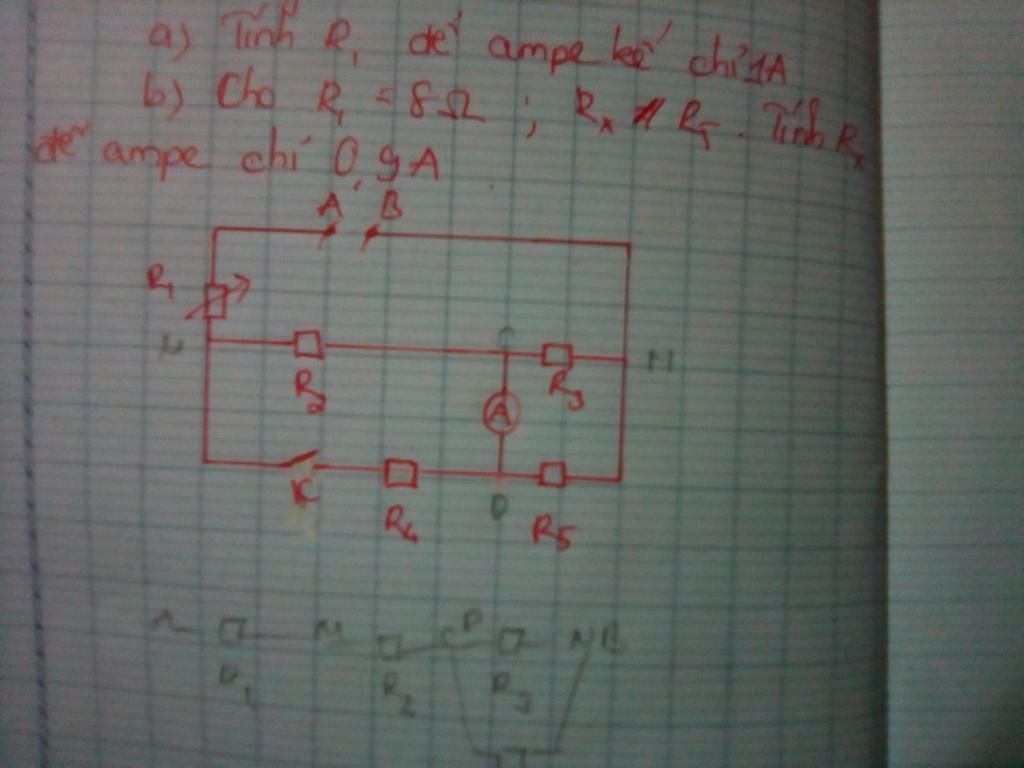 a) Tính R₁ để ampe kế chỉ 1A
b) Cho R₁ = 8Ω ; Rₓ // R₅. Tính Rₓ
để ampe chỉ 0,9A
A B
R₁
M C N
R₂ R₃
A
K R₄ D R₅
A M C D N B
R₁ R₂ R₃